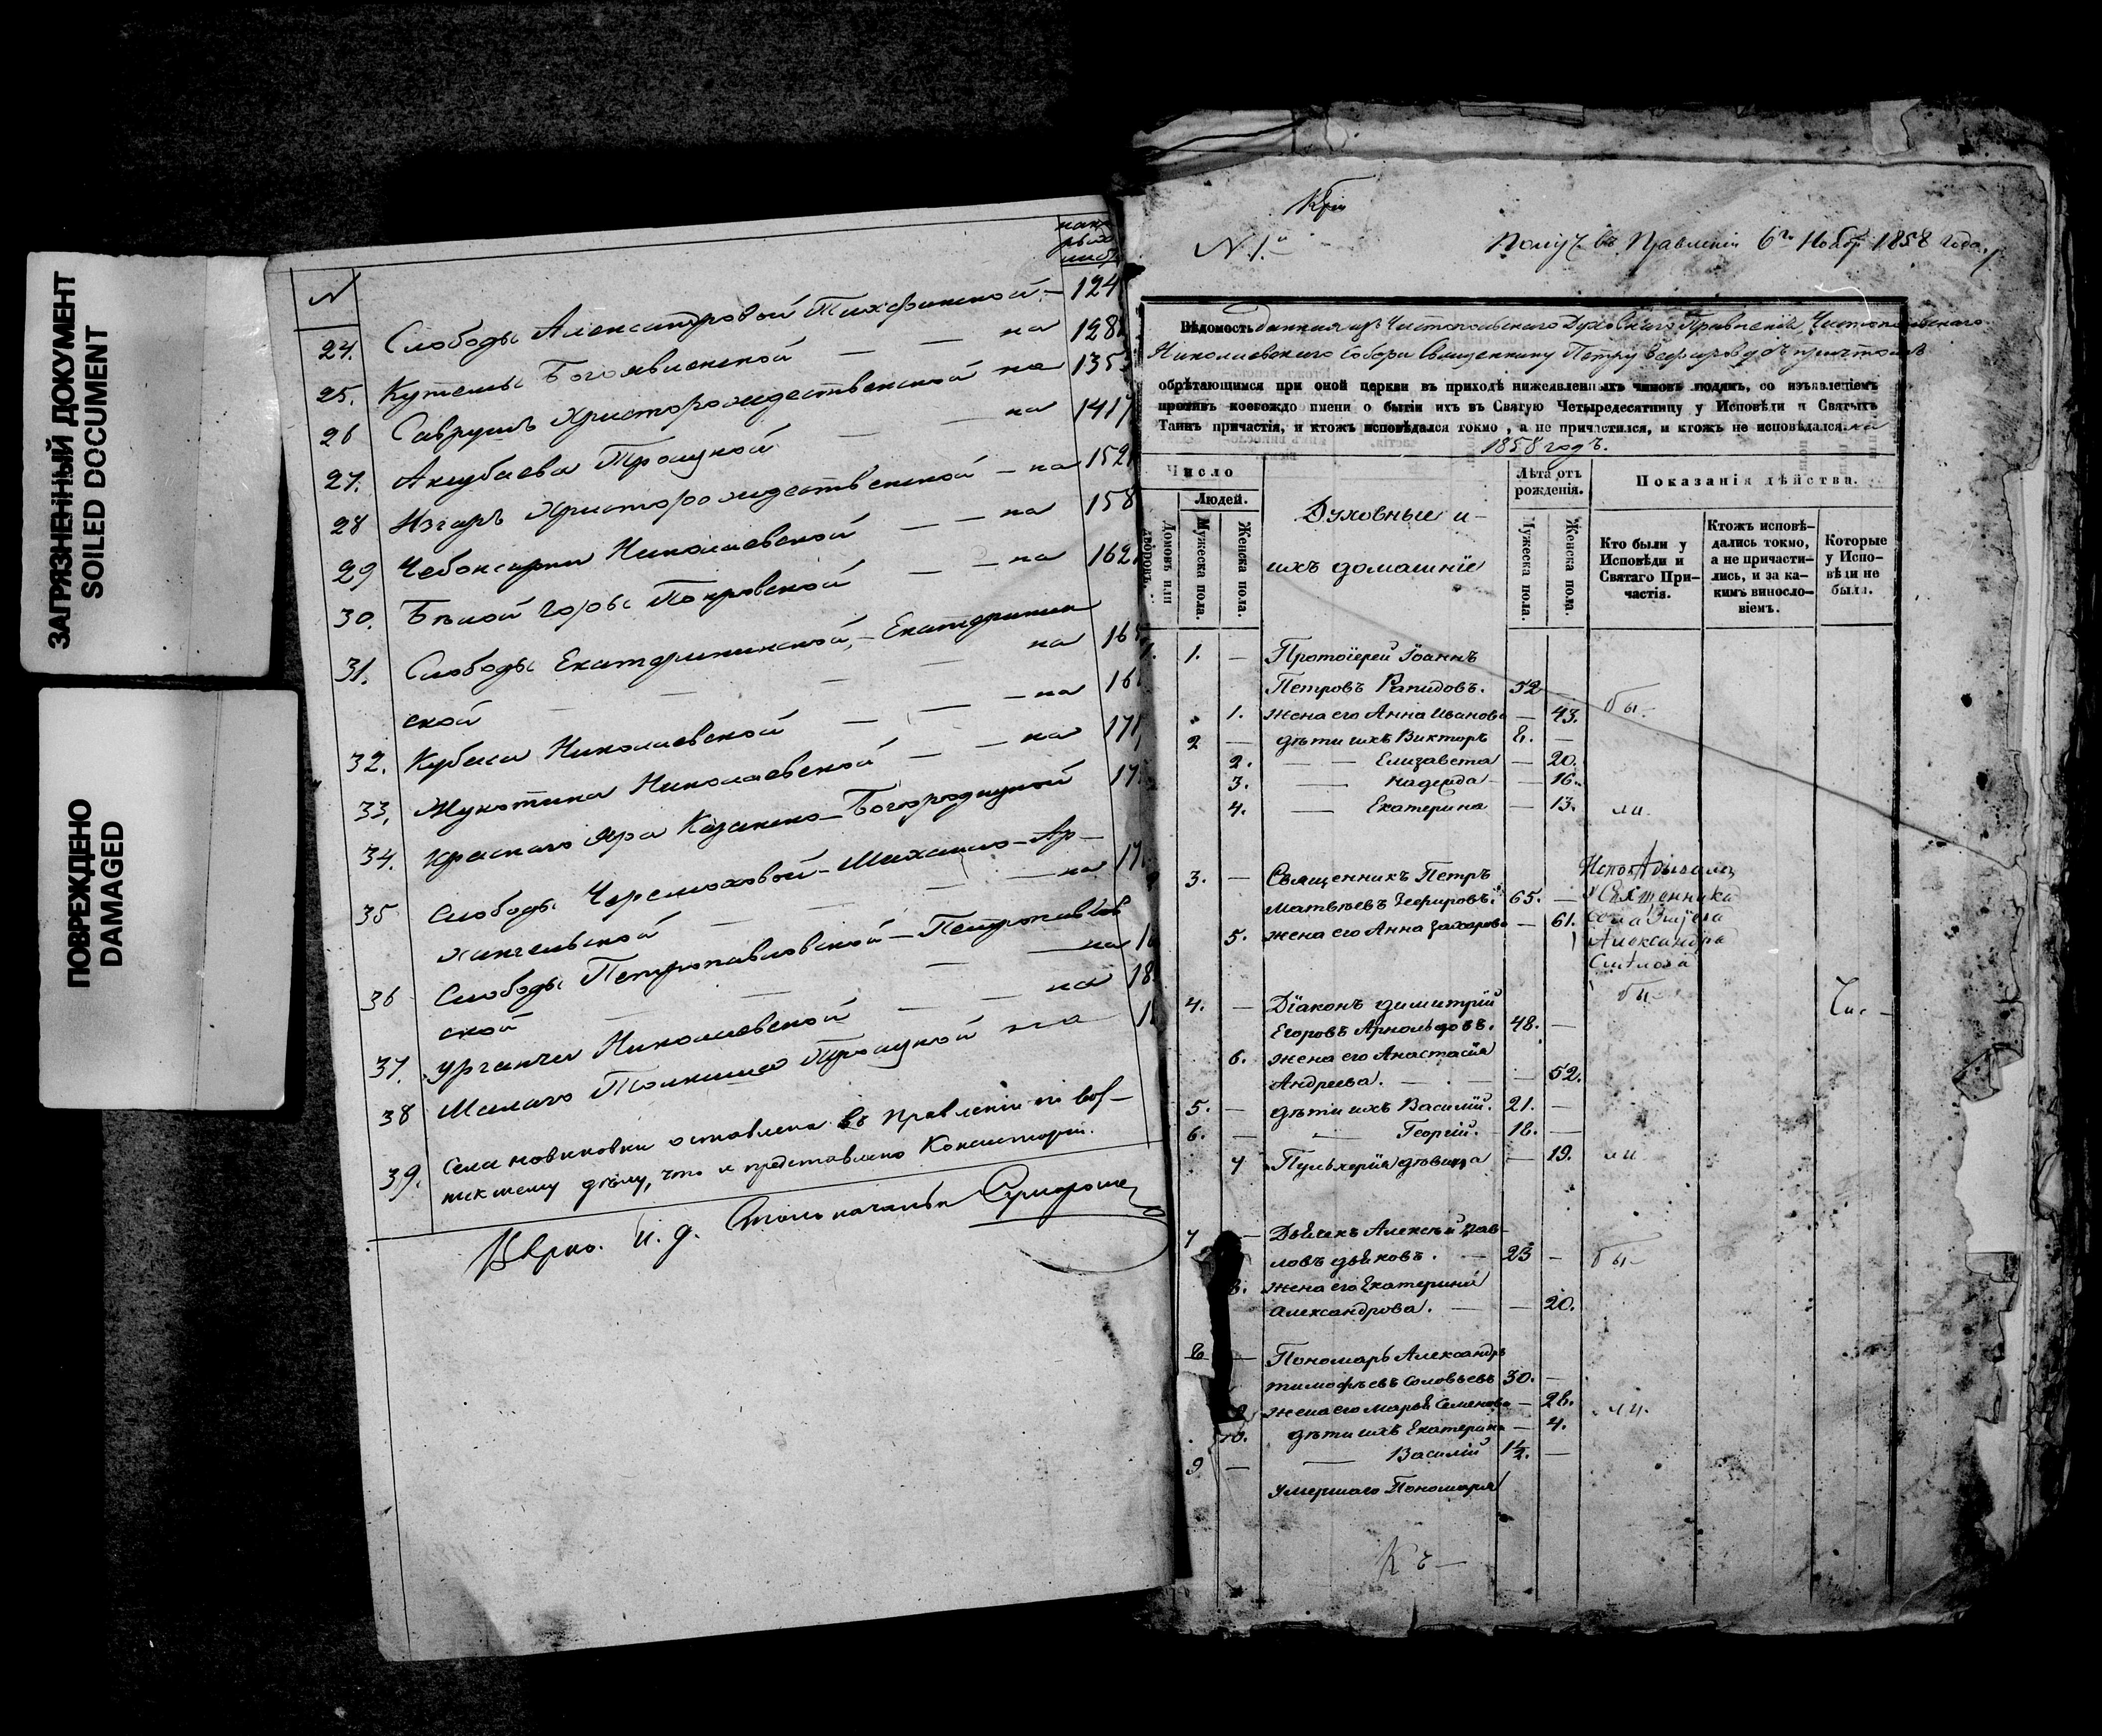 ЗАГРЯЗНЕННЫЙ ДОКУМЕНТ
SOILED DOCUMENT
ПОВРЕЖДЕНО
DAMAGED
№
24. Слободы Александровой Тихфинской — 124
25. Кутемы Богоявленской — — на 128
26 Саврушъ Христорождественской на 135
27. Акубаева Троицкой — — на 141
28 Изгаръ Христорождественской — на 152
29 Чебоксарки Николаевской — — на 158
30. Бѣлой Горы Покровской — — на 162
31. Слободы Екатерининской, Екатеринин
ской — — — на 16
32. Кубасы Николаевской — — на 16
33. Жукотина Николаевской — — на 171
34. Краснаго Яра Казанско-Богородицкой 17
35 Слободы Черемховой - Михаило-Ар-
хангельской — — на 17
36 Слободы Петропавловской — Петропавлов
ской — — на 1
37. Урганчи Николаевской — — на 18
38 Малаго Толкиша Троицкой на 1
39. Села Новиковки оставлена въ Правленіи по воз-
никшему дѣлу, что и представлено Консисторіи.
Вѣрно. И. д. Столоначальн
N. 1.й
Получ въ Правленіи 6го Нояб 1858 года
Вѣдомость данная изъ Чистопольскаго Духовнаго Правленія, Чистопольскаго
Николаевскаго Собора Священнику Петру Зефирову съ причтомъ
обрѣтающимся при оной церкви въ приходѣ нижеявленныхъ чиновъ людямъ, со изъявленіемъ
противъ коегождо имени о бытіи ихъ въ Святую Четыредесятницу у Исповѣди и Святыхъ
Таинъ причастія, и ктожъ исповѣдался токмо, а не причастился, и ктожъ не исповѣдался. на
1858 годъ.
Число
Людей.
Домовъ или дворовъ.
Мужеска пола.
Женска пола.
Духовные и
ихъ домашніе
Лѣта отъ рожденія.
Мужеска пола.
Женска пола.
Показанія дѣйства.
Кто были у Исповѣди и Святаго При-частія.
Ктожъ исповѣ-дались токмо, а не причасти-лись, и за ка-кимъ винословіемъ.
Которые у Испо-вѣди не были.
1. 1. — Протоіерей Іоаннъ
Петровъ Рапидовъ. 52 бы-
1. Жена его Анна Иванова — 43.
2 — дѣти ихъ Викторъ 8. —
2. — — Елизавета — 20.
3. — Надежда — 16.
4. — Екатерина — 13. ли.
3. — Священникъ Петръ
Матвѣевъ Зефировъ. 65. —
5. Жена его Анна Захарова — 61.
Священника
Александра
4. — Діаконъ Димитрій бы-
Егоровъ Арнольдовъ. 48. —
6. Жена его Анастасія
Андреева. — — 52.
5. — дѣти ихъ Василій. 21. —
6. — — Георгій. 18. —
7 Пульхерія дѣвица — 19. ли
7 — Дьячекъ Алексѣй Пав-
ловъ Дьяковъ. — 23 — бы-
8. Жена его Екатерина
Александрова. — — 20.
8 — Пономарь Александръ
Тимофѣевъ Соловьевъ 30. —
9 Жена его Марья Семенова — 28. ли.
10. дѣти ихъ Екатерина — 4.
9 — — Василій 1½. —
Умершаго Пономаря